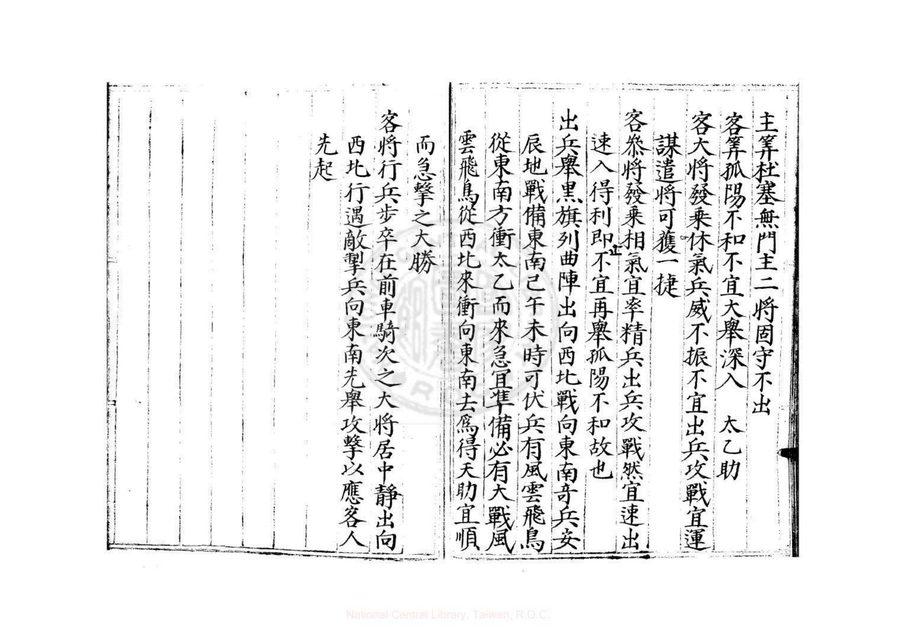 主筭杜塞無門主二將固守不出
客筭孤陽不和不宜大舉深入　太乙助
客大將發乘休氣兵威不振不宜出兵攻戰宜運
謀遣將可獲一捷
客叅將發乘相氣宜率精兵出兵攻戰然宜速出
速入得利即止不宜再舉孤陽不和故也
出兵舉黑旗列曲陣出向西北戰向東南奇兵安
辰地戰備東南己午未時可伏兵有風雲飛鳥
從東南方衝太乙而來急宜準備必有大戰風
雲飛鳥從西北來衝向東南去爲得天助宜順
而急擊之大勝
客將行兵步卒在前車騎次之大將居中靜出向
西北行遇敵掣兵向東南先舉攻擊以應客人
先起
National Central Library, Taiwan, R.O.C.